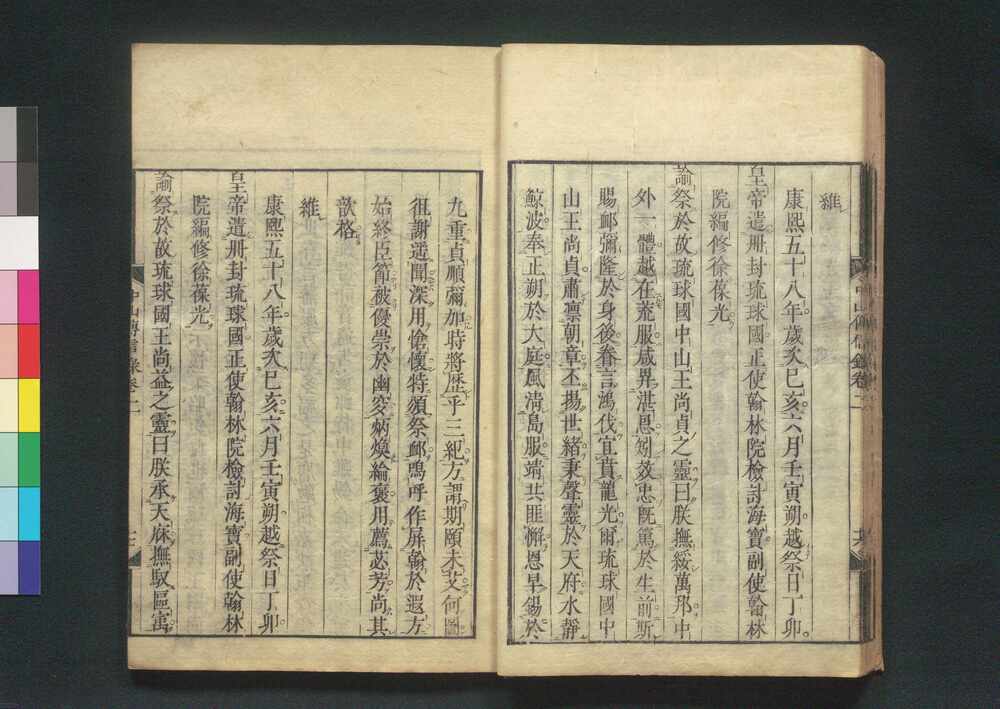 維
康熙五十八年歲次己亥六月壬寅朔越祭日丁卯
皇帝遣冊封琉球國正使翰林院檢討海寶副使翰林
院編修徐葆光
諭祭於故琉球國中山王尚貞之靈曰朕撫綏萬邦中
外一體越在荒服咸畀湛恩矧效忠既篤於生前斯
賜卹彌隆於身後眷言鴻伐宜賁龍光爾琉球國中
山王尚貞肅凛朝章丕揚世緒秉聲靈於天府水靜
鯨波奉正朔於大庭風淸島服靖共匪懈恩早錫於
中山傳信錄卷二
九重貞順彌加時將歷乎三紀方謂期頤未艾何圖
徂謝遥聞深用愴懷特頒祭卹嗚呼作屏翰於遐方
始終臣節被優崇於幽穸炳煥綸褒用薦苾芳尚其
歆格
維
康熙五十八年歲次己亥六月壬寅朔越祭日丁卯
皇帝遣冊封琉球國正使翰林院檢討海寶副使翰林
院編修徐葆光
諭祭於故琉球國王尚益之靈曰朕承天庥撫馭區寓
中山傳信錄卷二